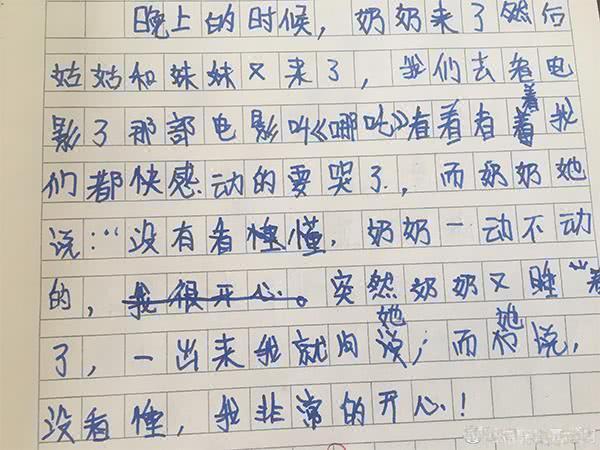 晚上的时候，奶奶来了然后
姑姑和妹妹又来了，我们去看电
影了那部电影叫《哪吒》看着看着我
们都快感动的要哭了，而奶奶她
说：“没有看懂，奶奶一动不动
的，突然奶奶又睡”着
了，一出来我就问她；而她说，
没看懂，我非常的开心！